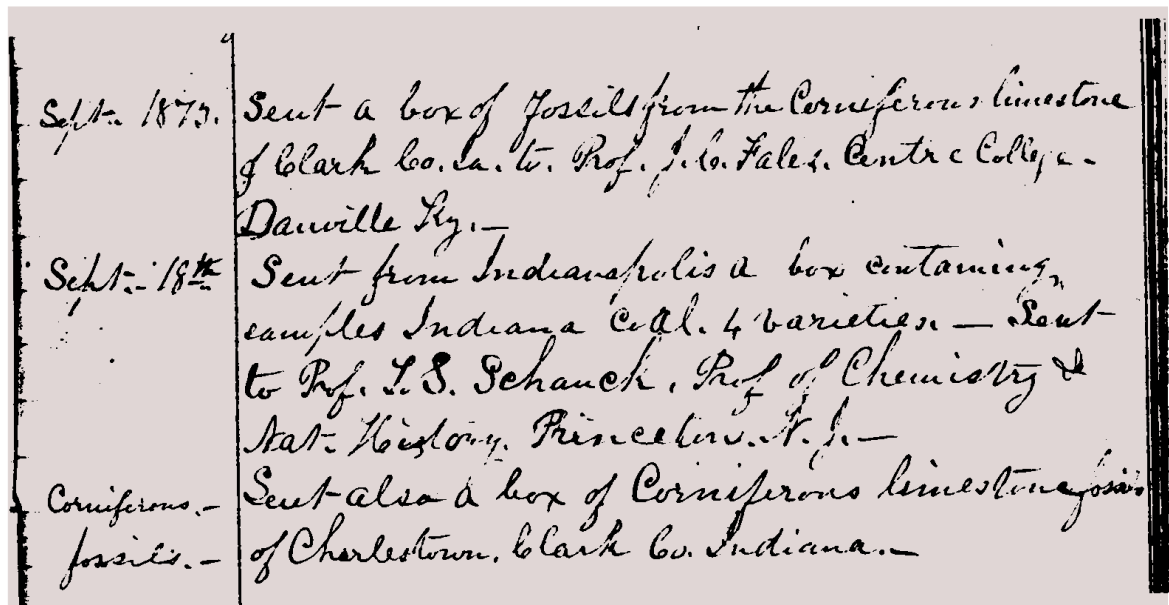 Sept. 1873. Sent a box of fossils from the Corniferous limestone
of Clark Co. Ia. to. Prof. J. C. Fales. Centre College.
Danville Ky. —
Sept. 18th Sent from Indianapolis a box containing
samples Indiana Coal. 4 varieties. — Sent
to Prof. S. Schanck. Prof of Chemistry &
Nat. History. Princeton. N. J. —
Corniferous. — Sent also a box of Corniferous limestone fossils
fossils. — of Charlestown. Clark Co. Indiana. —